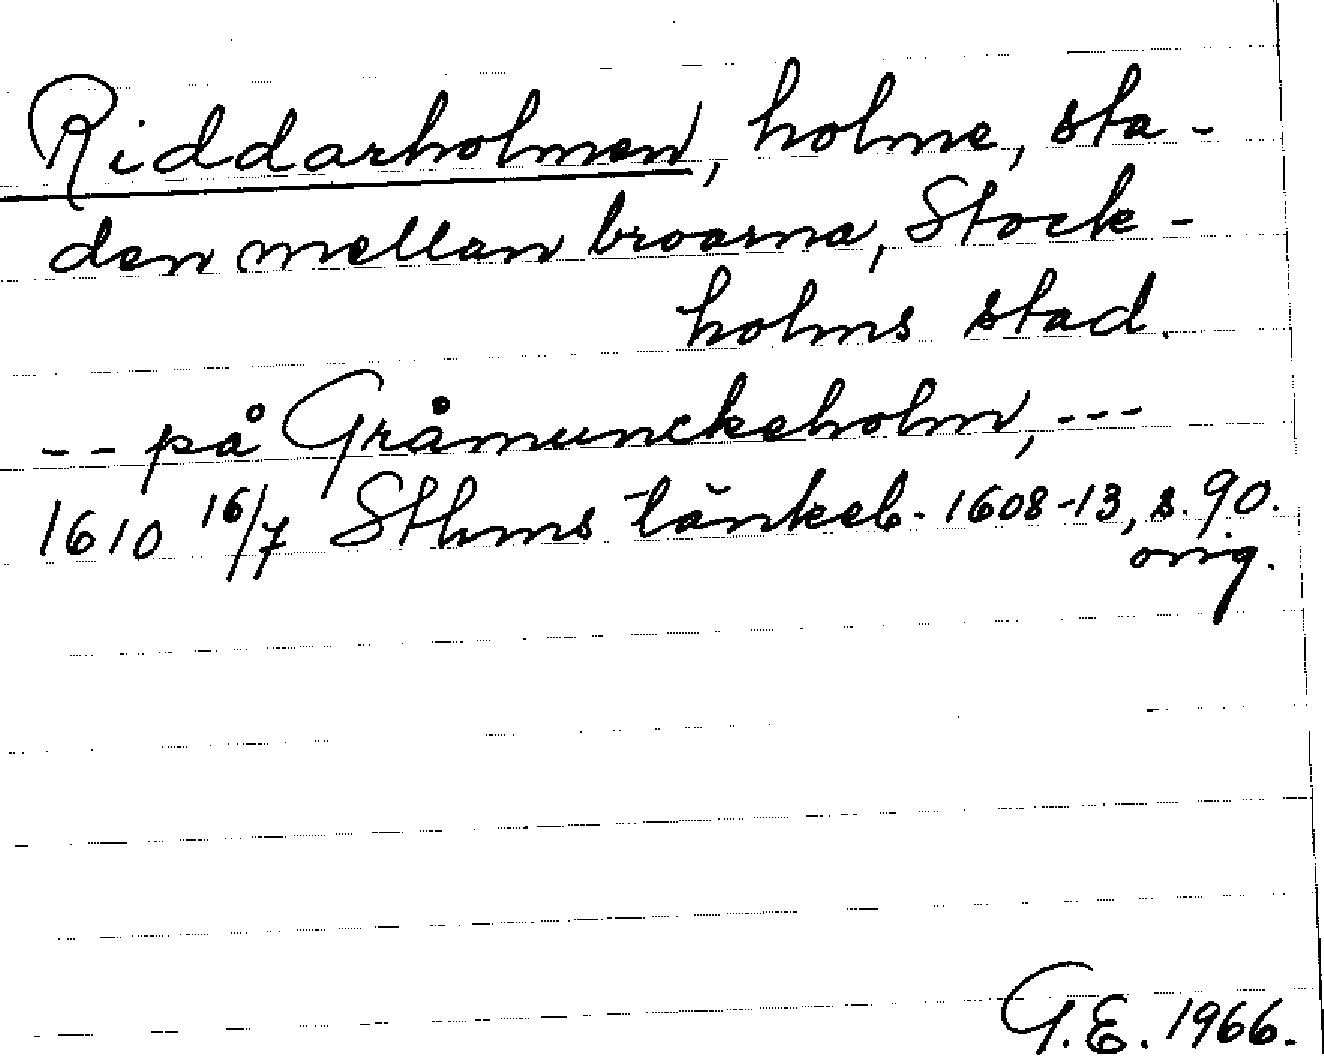 Riddarholmen, holme, sta-
den mellan broarna, Stock-
holms stad.
-- på Gråmunckeholm, ---
1610 16/7 Sthms tänkeb. 1608-13, s. 90.
orig.
G.E. 1966.